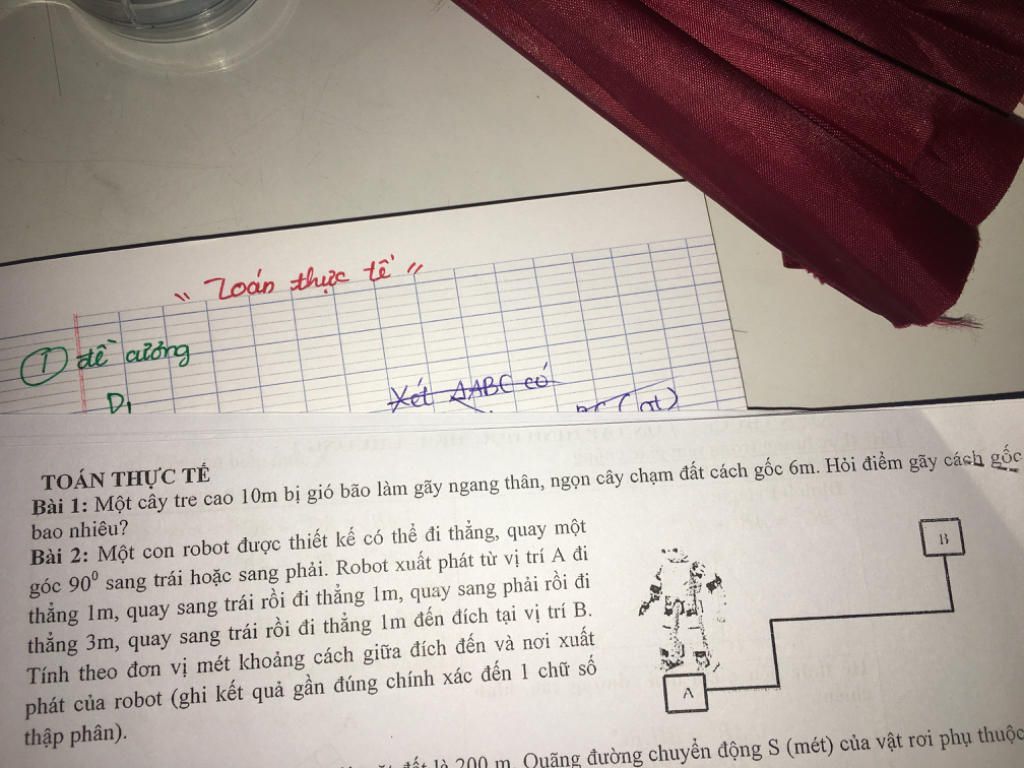 " Toán thực tế "
① đề cương
D1
Xét ΔABC có
TOÁN THỰC TẾ
Bài 1: Một cây tre cao 10m bị gió bão làm gãy ngang thân, ngọn cây chạm đất cách gốc 6m. Hỏi điểm gãy cách gốc
bao nhiêu?
Bài 2: Một con robot được thiết kế có thể đi thẳng, quay một
góc 90⁰ sang trái hoặc sang phải. Robot xuất phát từ vị trí A đi
thẳng 1m, quay sang trái rồi đi thẳng 1m, quay sang phải rồi đi
thẳng 3m, quay sang trái rồi đi thẳng 1m đến đích tại vị trí B.
Tính theo đơn vị mét khoảng cách giữa đích đến và nơi xuất
phát của robot (ghi kết quả gần đúng chính xác đến 1 chữ số
thập phân).
B
A
đất là 200 m. Quãng đường chuyển động S (mét) của vật rơi phụ thuộc